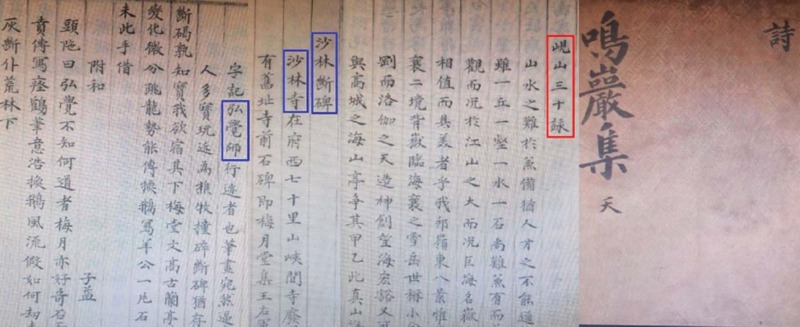 詩
鳴巖集 天
峴山三十詠
山水之難於兼備猶人才之不能通
雖一丘一壑一水一石尚難兼有而
觀而況於江山之大而況巨海名嶽
相值而具美者乎我邦嶺東八景惟
襄二境背嶽臨海襄之雪岳世稱小
劉而洛伽之天造神創望海宏豁又
與高城之海山亭爭其甲乙此真山
沙林斷碑
沙林寺在府西七十里山峽間寺廢
有舊址寺前石碑即梅月堂集王右軍
字記弘覺師行迹者也筆畫宛然邊
人多寶玩近為樵牧撞碎斷碑猶存
斷碣孰知寶我欲宿其下梅堂文高古蘭亭
變化微分跳龍勢能傳換鵝寫羊公一片石
未此手借
附和 子益
頭陀曰弘覺不知何道者梅月亦好奇石
賁傳寫瘞鶴筆意浩換鵝風流假如何却
灰斷仆荒林下